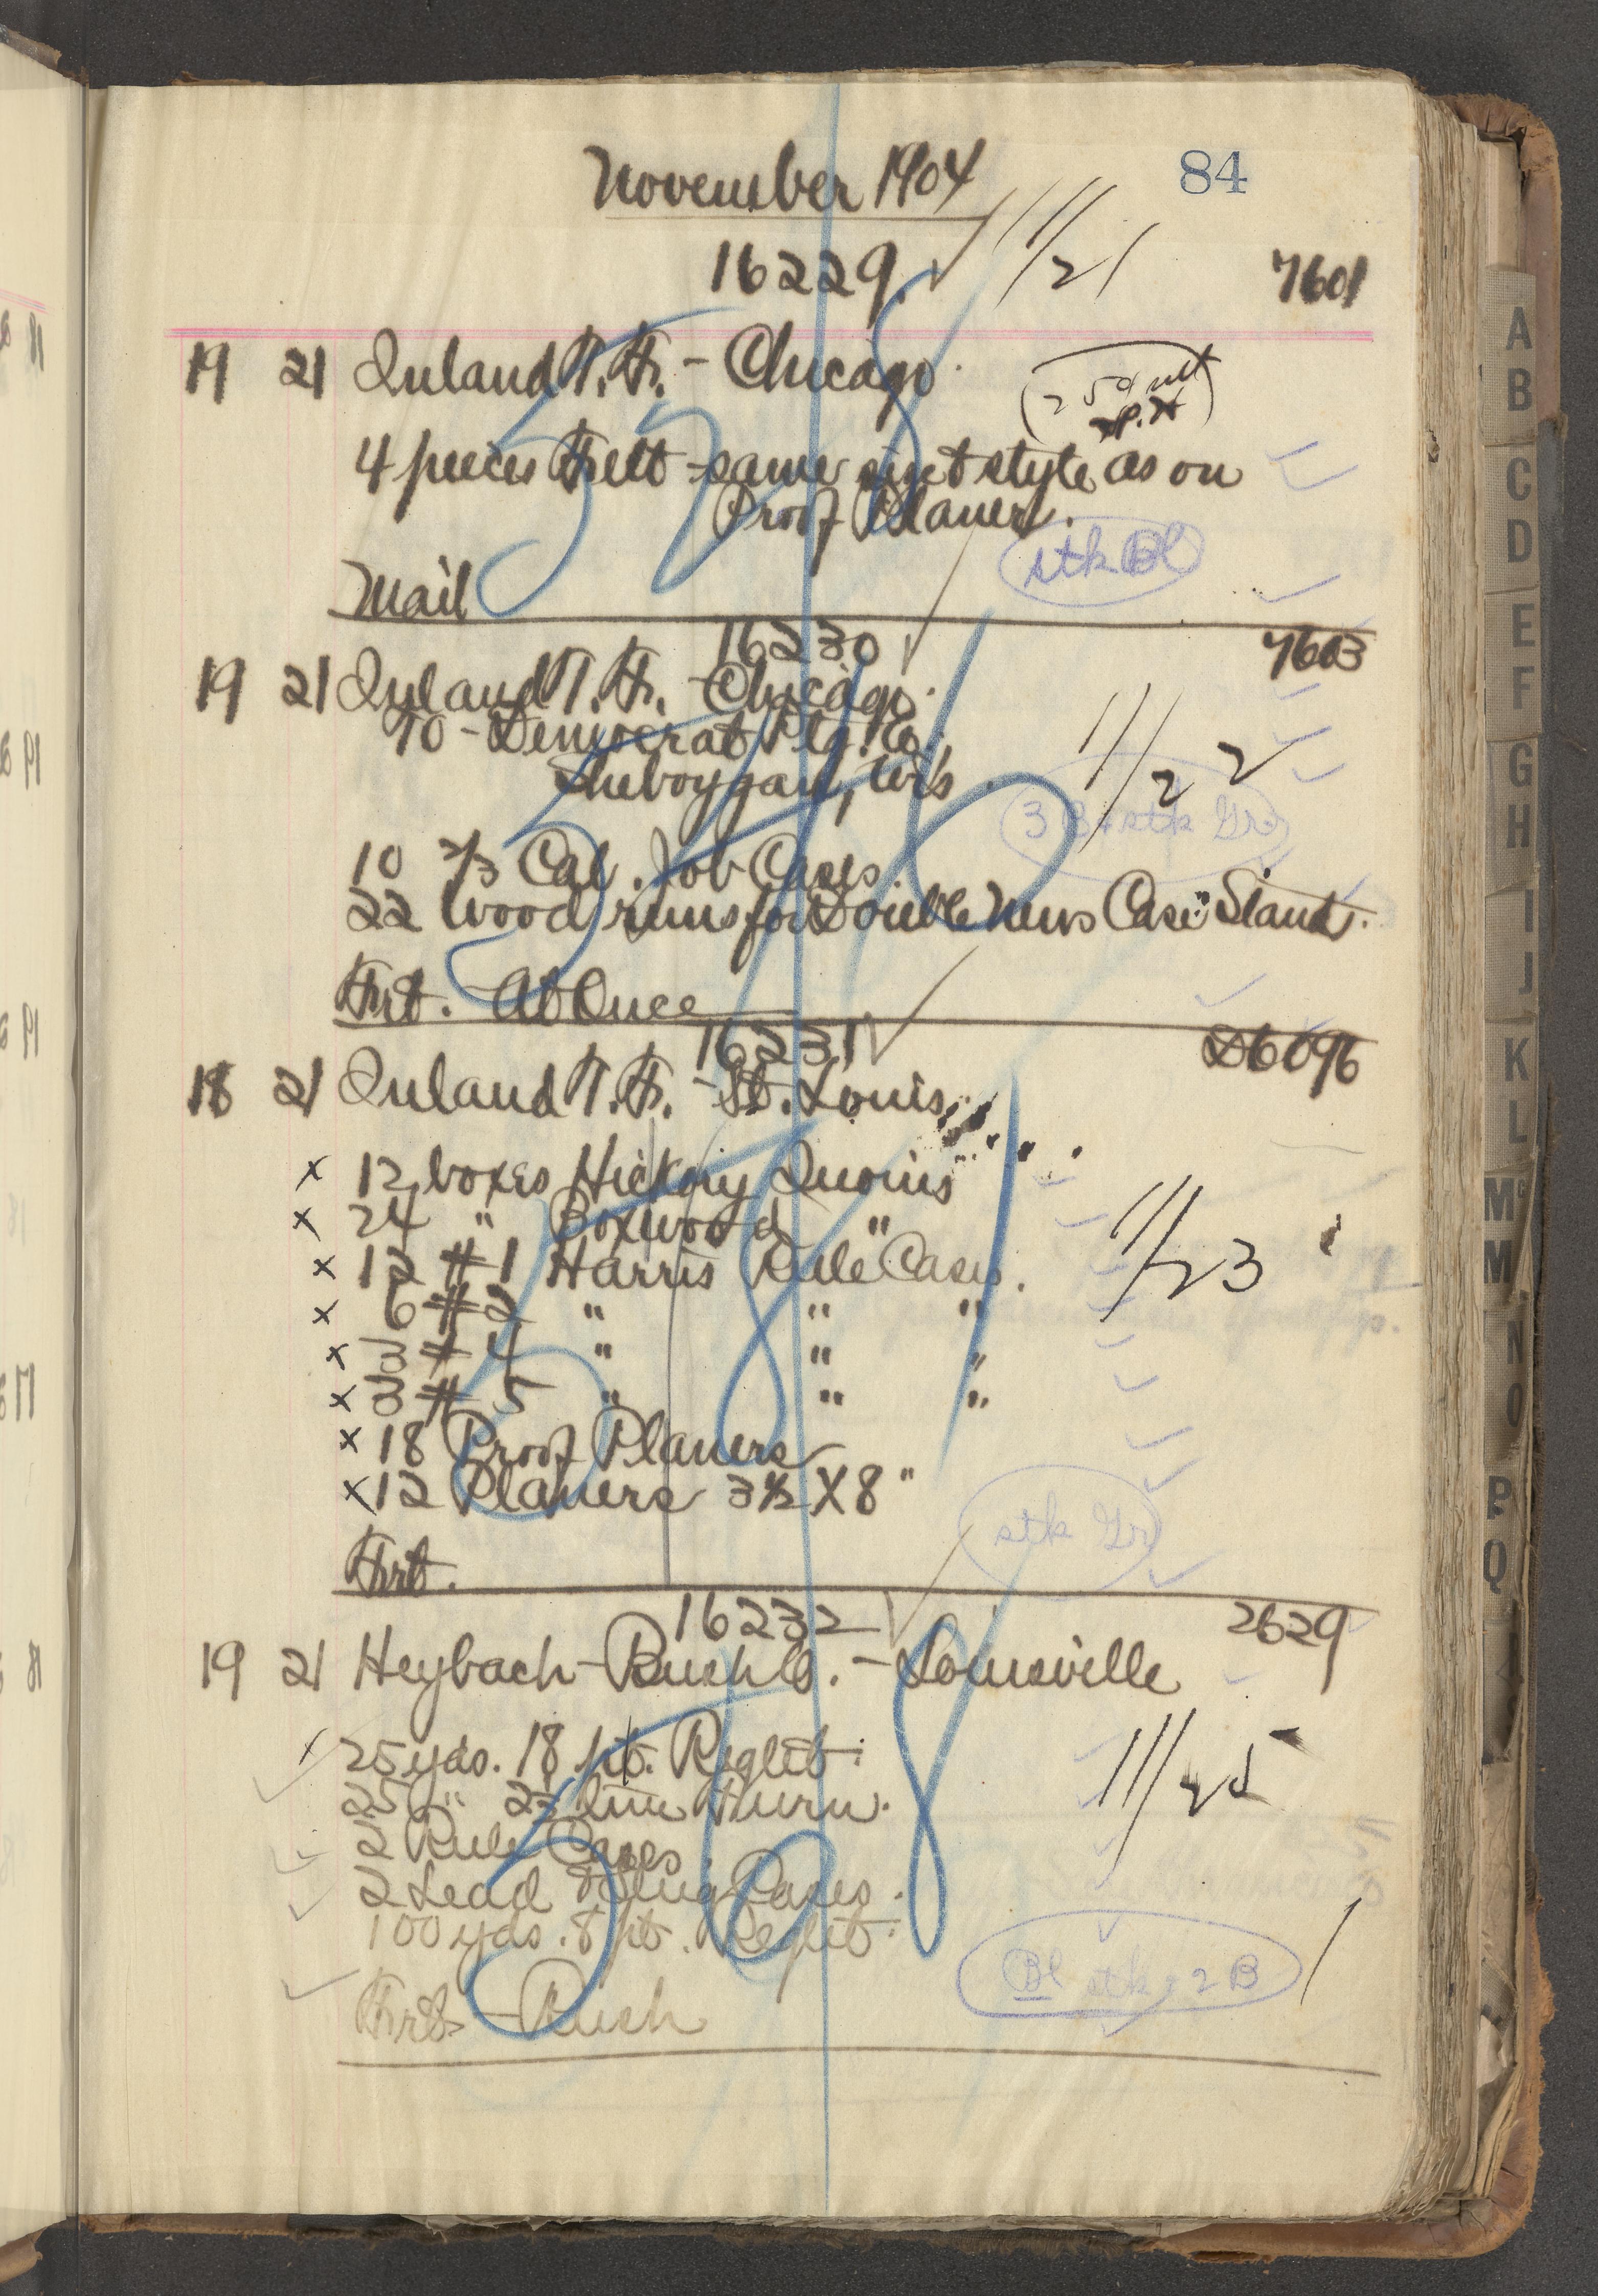 84
November 1904
16229 11/21 7601
19 21 Inland T. F. - Chicago
4 pieces Felt - same size & style as on
Proof Planer.
stk Bl
Mail
16230 7603
19 21 Inland T. F. - Chicago.
To - Democrat Ptg. Co.,
Sheboygan, Wis. 11/22
3 B stk Gr
10 2/3 Cal. Job Cases
22 Wood runs for Double News Case Stand.
Frt. At Once
16231 D6096
18 21 Inland T. F. - St. Louis
x 12 boxes Hickory Quoins
x 24 " Boxwood "
x 12 #1 Harris Rule Cases. 11/23
x 6 #2 " " "
x 2 #4 " " "
x 2 #5 " " "
x 18 Proof Planers
x 12 Planers 3½ X 8"
stk Gr
Frt.
16232 2629
19 21 Heybach-Bush Co. - Louisville
25 yds. 18 pt. Reglet. 11/25
25 " 2½ line Furn.
2 Rule Cases
2 Lead & Slug Cases.
100 yds. 8 pt. Reglet.
Bl stk 2 B
Frt - Rush
A
B
C
D
E
F
G
H
I
J
K
L
Mc
M
N
O
P
Q